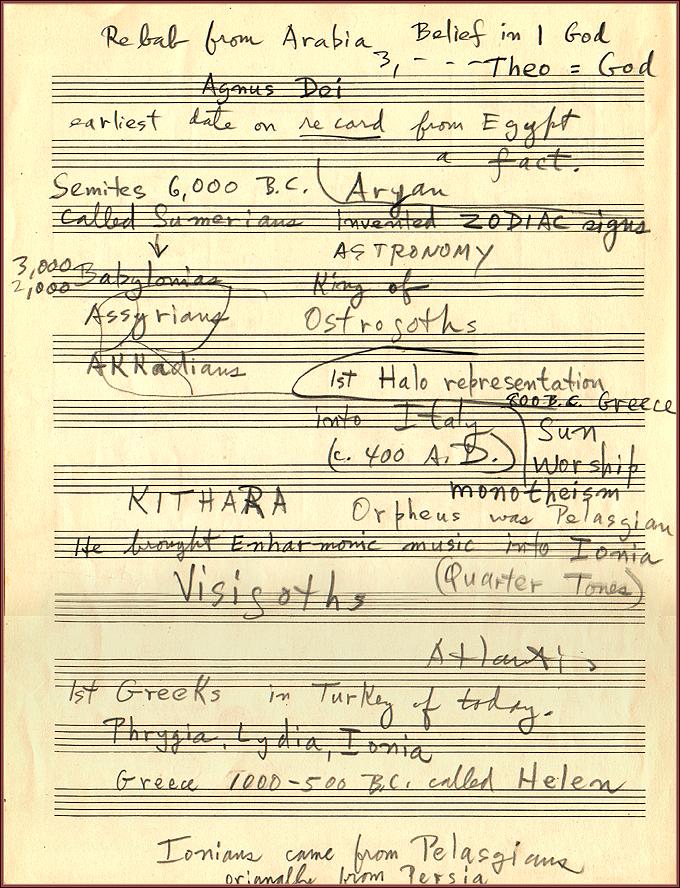 Rebab from Arabia Belief in 1 God
3, - - - Theo = God
Agnus Dei
earliest date on record from Egypt
a fact.
Semites 6,000 B.C. Aryan
Called Sumerians invented ZODIAC signs
ASTRONOMY
3,000
2,000 Babylonias King of
Assyrians Ostrogoths
AKKadians 1st Halo representation
800 B.C. Greece
into Italy Sun
(c. 400 A.D.) Worship
monotheism
KITHARA Orpheus was Pelasgian
He brought Enharmonic music into Ionia
Visigoths (Quarter Tones)
Atlantis
1st Greeks in Turkey of today.
Phrygia, Lydia, Ionia
Greece 1000-500 B.C. called Helen
Ionians came from Pelasgians
from Persia